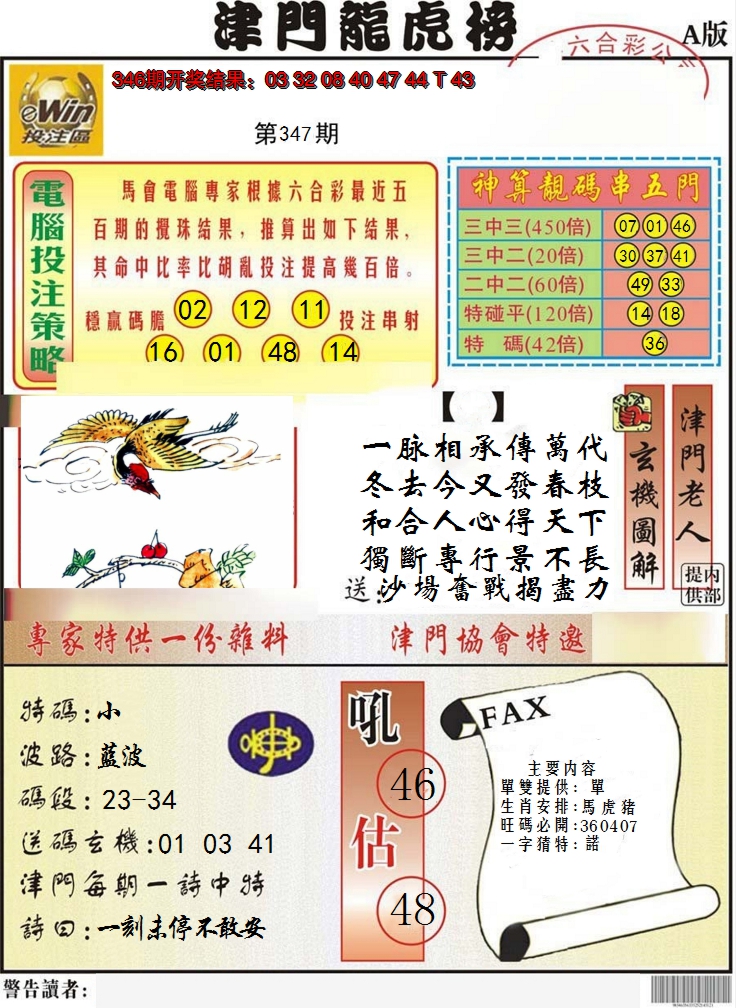 津門龍虎榜
A版
六合彩公
eWin
投注區
346期开奖结果：03 32 08 40 47 44 T 43
第347期
電腦投注策略
馬會電腦專家根據六合彩最近五
百期的攪珠结果，推算出如下结果，
其命中比率比胡亂投注提高幾百倍。
穩贏碼膽 02 12 11 投注串射
16 01 48 14
神算靚碼串五門
三中三(450倍) 07 01 46
三中二(20倍) 30 37 41
二中二(60倍) 49 33
特碰平(120倍) 14 18
特 碼(42倍) 36
【 】
一脉相承傳萬代
冬去今又發春枝
和合人心得天下
獨斷專行景不長
送:沙場奮戰揭盡力
玄機圖解
津門老人
内部提供
專家特供一份雜料
津門協會特邀
特碼:小
波路:藍波
碼段:23-34
送碼玄機:01 03 41
津門每期一詩中特
詩曰:一刻未停不敢安
吼
46
估
48
FAX
主要内容
單雙提供：單
生肖安排:馬虎豬
旺碼必開:360407
一字猜特:諾
警告讀者: